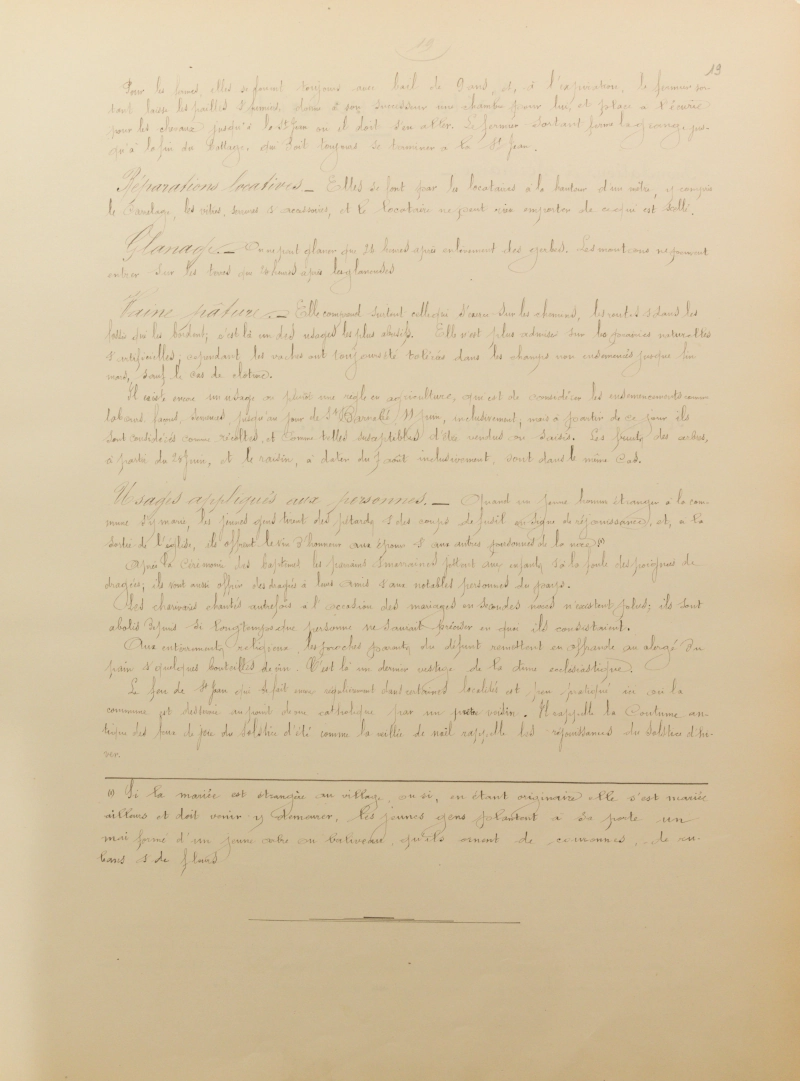 19
19
Pour les fermes, elles se feront toujours avec bail de 9 ans, et, à l'expiration, le fermier sor-
tant laisse les pailles & fumiers, donne à son successeur une chambre pour lui, et place à l'écurie
pour les chevaux jusqu'à la St Jean où il doit s'en aller. Le fermier sortant jouit la grange jus-
qu'à la fin du battage, qui doit toujours se terminer à la St Jean.
Réparations locatives. — Elles se font par les locataires à la hauteur d'un mètre, y compris
le carrelage, les vitres, serrures & accessoires, et le locataire ne peut rien emporter de ce qui est scellé.
Glanage. — On ne peut glaner que 24 heures après enlèvement des gerbes. Les moutons ne peuvent
entrer sur les terres que 24 heures après les glaneuses
Vaine pâture. — Elle comprend surtout celle sur les chemins, les routes & dans les
fossés qui les bordent; c'est là un des usages les plus abusifs. Elle n'est plus admise sur les prairies naturelles
& artificielles; cependant les vaches ont toujours été tolérées dans les champs non ensemencés jusque fin
mars, sauf le cas de clôture.
Il existe encore un usage ou plutôt une règle en agriculture, qui est de considérer les ensemencements comme
labours, fumés, semences, jusqu'au jour de St Barnabé 11 juin, inclusivement; mais à partir de ce jour ils
sont considérés comme récoltes, et comme telles susceptibles d'être vendus ou saisis. Les fruits des arbres,
à partir du 24 juin, et le raisin, à dater du août inclusivement, sont dans le même cas.
Usages appliqués aux personnes. — Quand un jeune homme étranger à la com-
mune s'y marie, les jeunes gens tirent des pétards & des coups de fusil en signe de réjouissance, et, à la
sortie de l'église, ils offrent le vin d'honneur aux époux & aux autres personnes de la noce (1)
Après la cérémonie des baptêmes les parrains & marraines jettent aux enfants & à la foule des poignées de
dragées; ils vont aussi offrir des dragées à leurs amis & aux notables personnes du pays.
Les charivaris chantés autrefois à l'occasion des mariages en secondes noces n'existent plus; ils sont
abolis depuis si longtemps que personne ne saurait préciser en quoi ils consistaient.
Aux enterrements religieux, les proches parents du défunt remettent en offrande au clergé du
pain & quelques bouteilles de vin. C'est là un dernier vestige de la dîme ecclésiastique.
Le feu de St Jean qui se fait encore régulièrement dans certaines localités est peu pratiqué ici où la
commune est desservie au point de vue catholique par un prêtre voisin. Il rappelle la coutume an-
tique des feux de joie du solstice d'été comme la veillée de noël rappelle les réjouissances du solstice d'hi-
ver.
(1) Si la mariée est étrangère au village, ou si, en étant originaire elle s'est mariée
ailleurs et doit venir y demeurer, les jeunes gens plantent à sa porte un
mai formé d'un jeune arbre ou baliveau, qu'ils ornent de couronnes, de ru-
bans & de fleurs